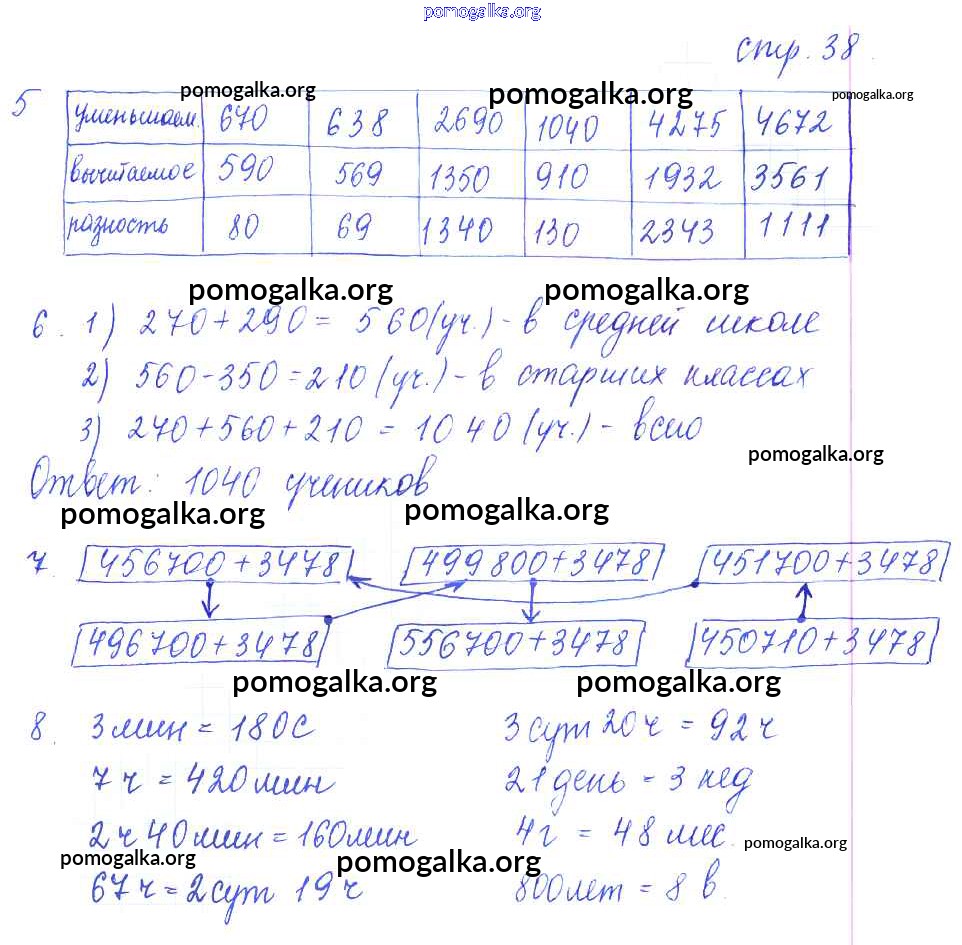 pomogalka.org
стр. 38.
pomogalka.org pomogalka.org pomogalka.org
5 уменьшаем. 670 638 2690 1040 4275 4672
вычитаемое 590 569 1350 910 1932 3561
разность 80 69 1340 130 2343 1111
pomogalka.org pomogalka.org
6. 1) 270 + 290 = 560 (уч.) - в средней школе
2) 560 - 350 = 210 (уч.) - в старших классах
3) 270 + 560 + 210 = 1040 (уч.) - всего
pomogalka.org
Ответ: 1040 учеников
pomogalka.org pomogalka.org
7. 456700 + 3478 499800 + 3478 451700 + 3478
496700 + 3478 556700 + 3478 450710 + 3478
pomogalka.org pomogalka.org
8. 3 мин = 180 с 3 сут 20 ч = 92 ч
7 ч = 420 мин 21 день = 3 нед
2 ч 40 мин = 160 мин 4 г = 48 мес.
pomogalka.org pomogalka.org pomogalka.org
67 ч = 2 сут 19 ч 800 лет = 8 в.